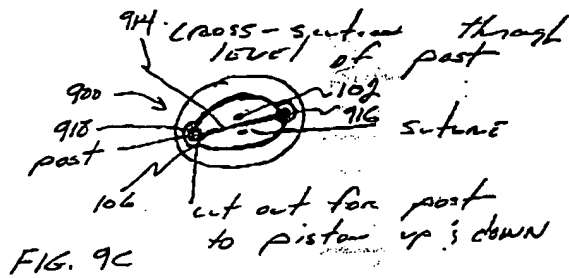 914
CROSS-section through
LEVEL of post
900
102
916
918
post
suture
106
cut out for post
to piston up & down
FIG. 9C